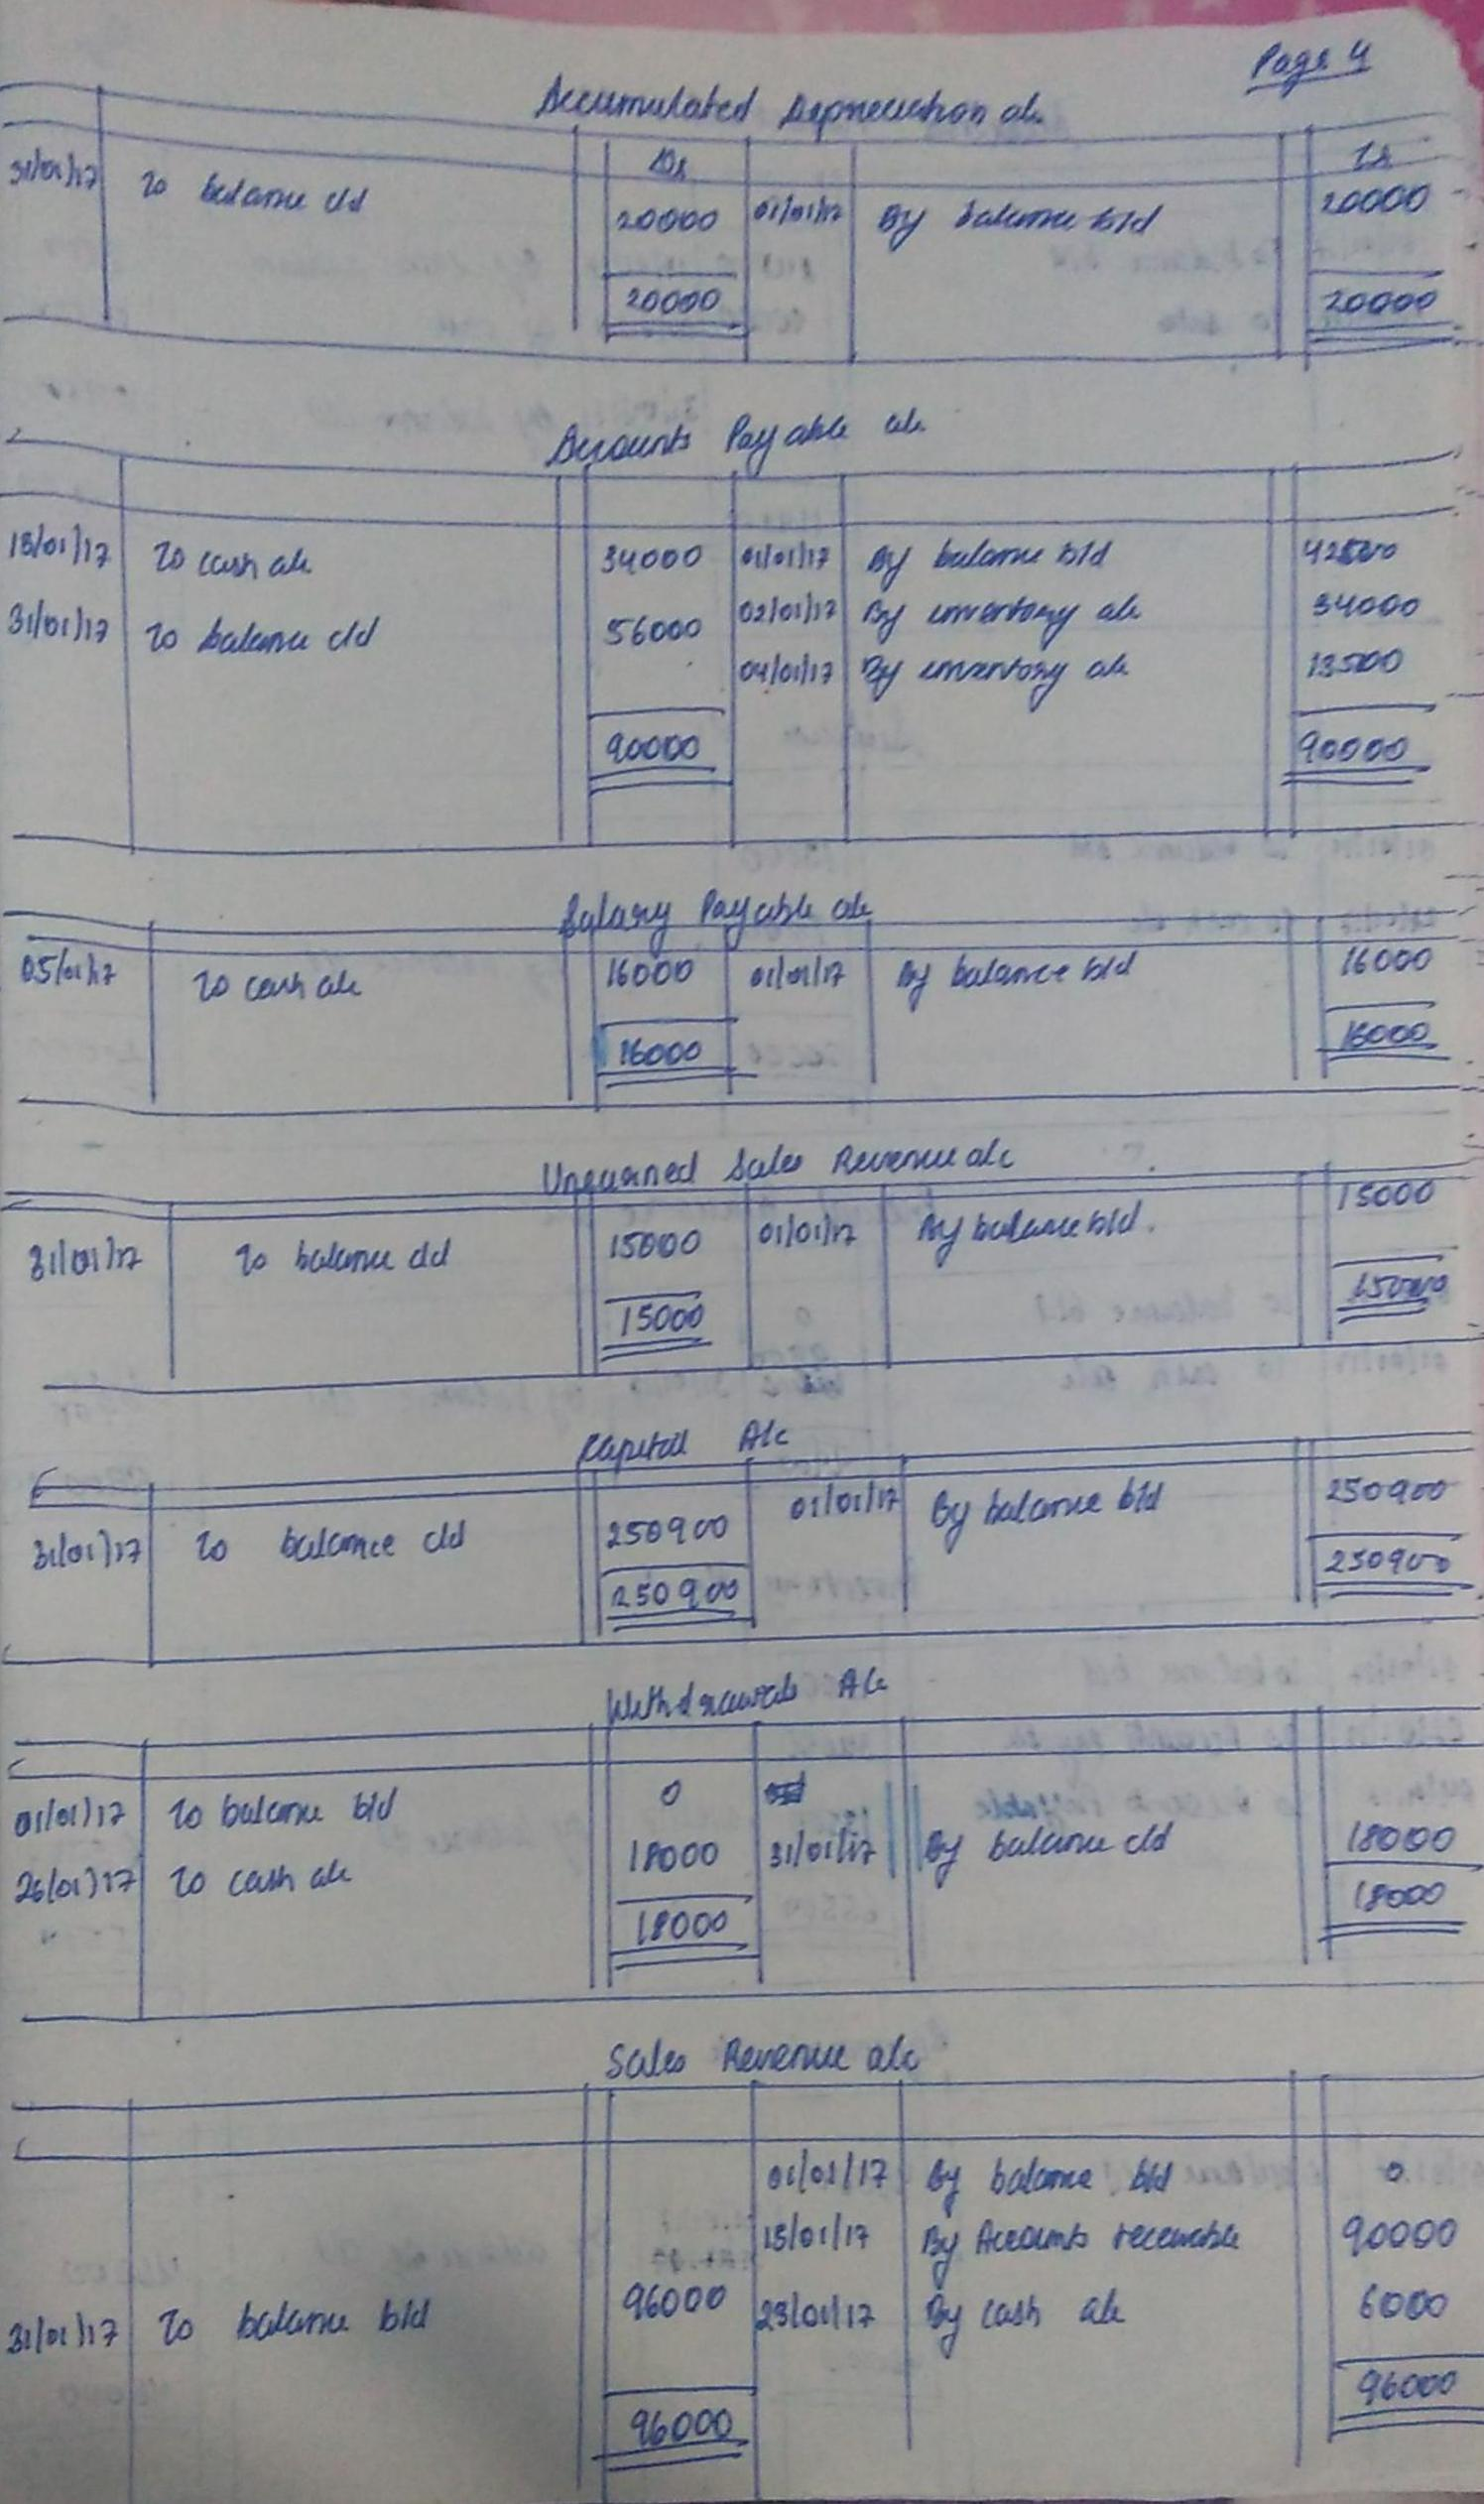 Page 4
Accumulated Depreciation a/c
Dr Cr
31/01/17 To balance c/d 20000 01/01/17 By balance b/d 20000
20000 20000
Accounts Payable a/c
15/01/17 To cash a/c 34000 01/01/17 By balance b/d 42500
31/01/17 To balance c/d 56000 02/01/17 By inventory a/c 34000
04/01/17 By inventory a/c 13500
90000 90000
Salary Payable a/c
05/01/17 To cash a/c 16000 01/01/17 By balance b/d 16000
16000 16000
Unearned Sales Revenue a/c
31/01/17 To balance c/d 15000 01/01/17 By balance b/d. 15000
15000 15000
Capital A/c
31/01/17 To balance c/d 250900 01/01/17 By balance b/d 250900
250900 250900
Withdrawals A/c
01/01/17 To balance b/d 0
26/01/17 To cash a/c 18000 31/01/17 By balance c/d 18000
18000 18000
Sales Revenue a/c
01/01/17 By balance b/d 0
By Accounts receivable 90000
31/01/17 To balance b/d 96000 By cash a/c 6000
96000 96000